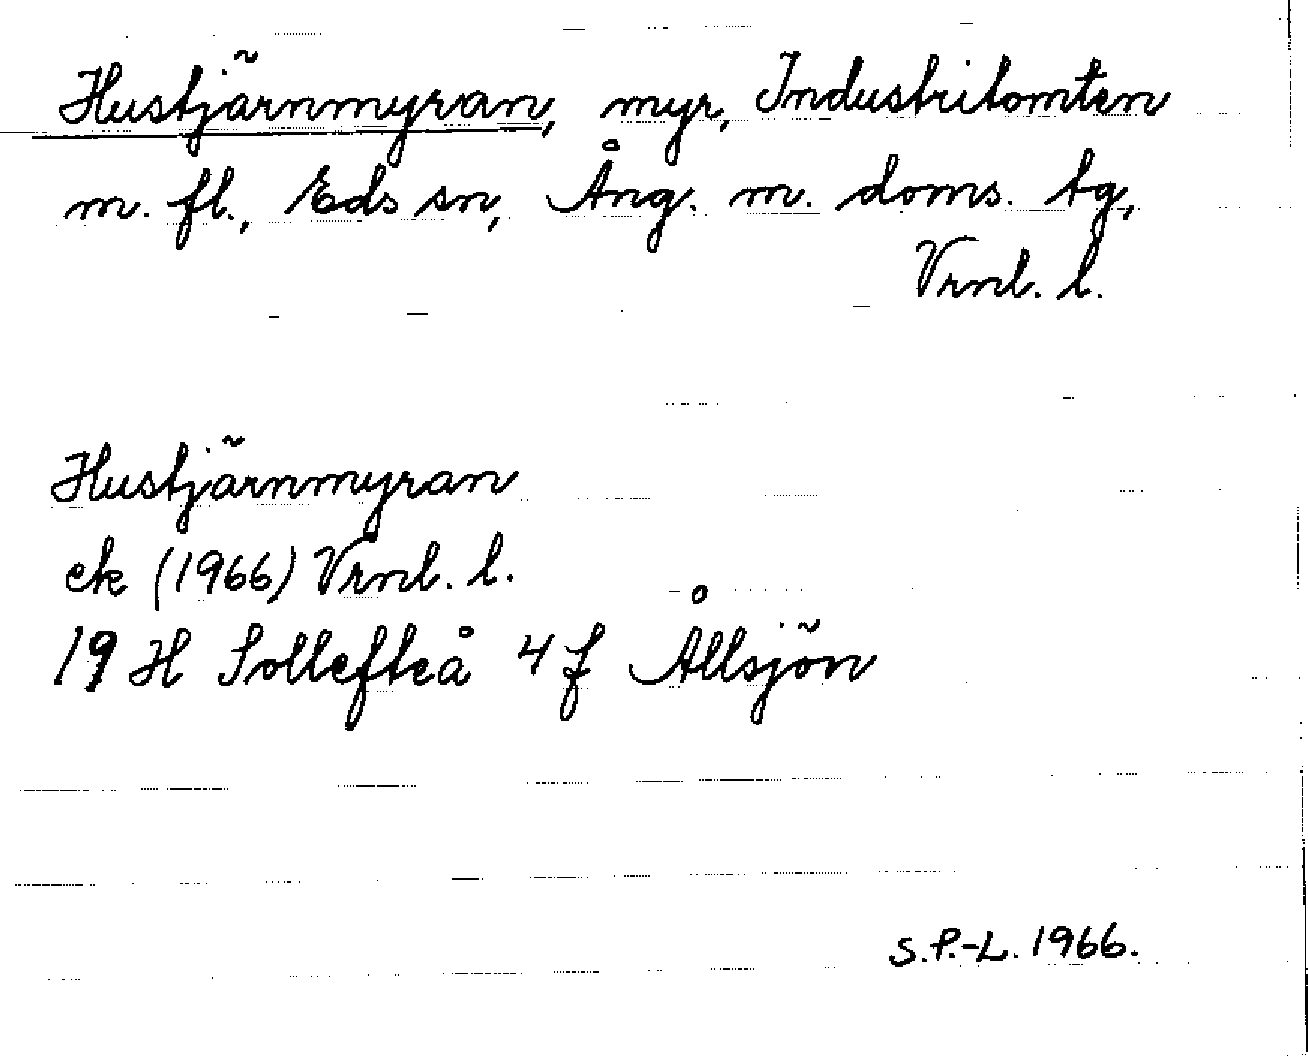 Hustjärnmyran, myr, Industritomten
m. fl., Eds sn, Ång. m. doms. tg,
Vrnl. l.
Hustjärnmyran
ek (1966) Vrnl. l.
19 H Sollefteå 4 f Ållsjön
S.P.-L. 1966.